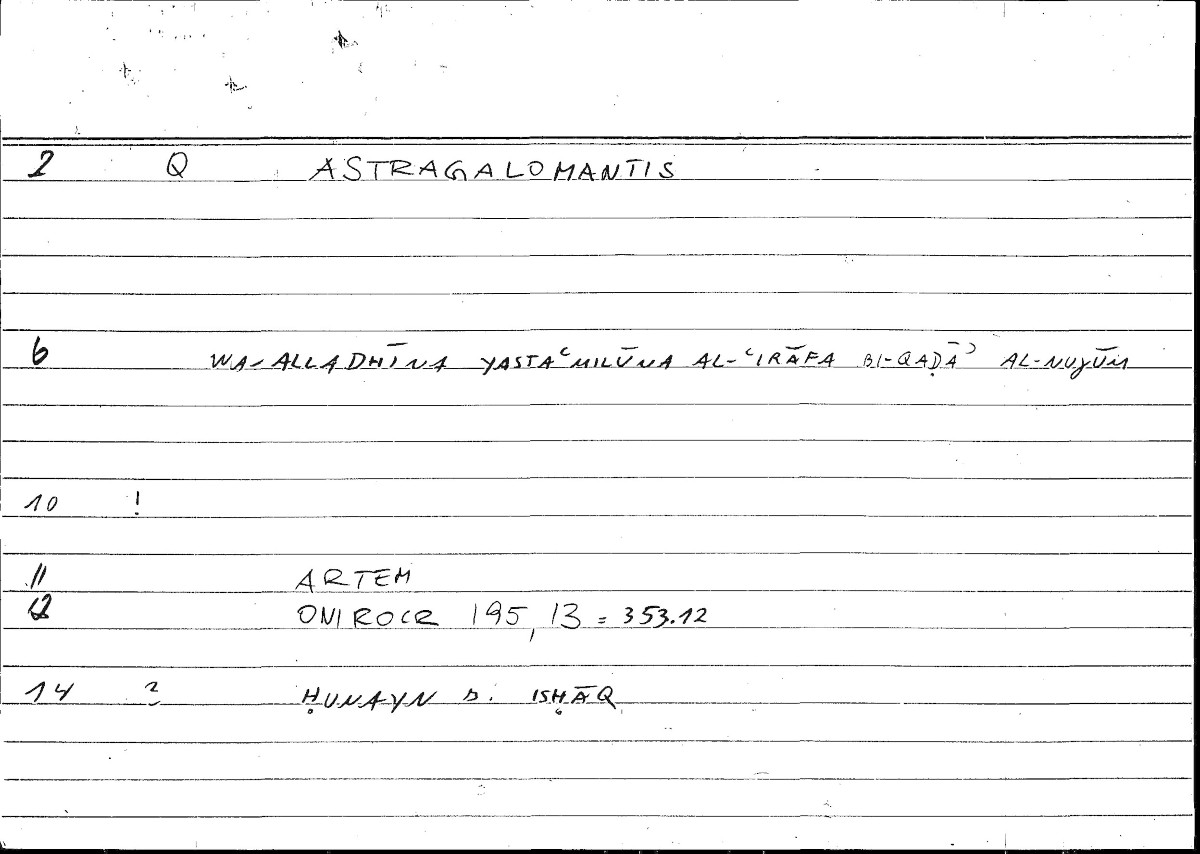 2 Q ASTRAGALOMANTIS
6 WA-ALLADHĪNA YASTAʿMILŪNA AL-ʿIRĀFA BI-QAḌĀʾ AL-NUJŪM
10 !
11 ARTEM
12 ONIROCR 195,13 = 353.12
14 ? ḤUNAYN B. ISḤĀQ